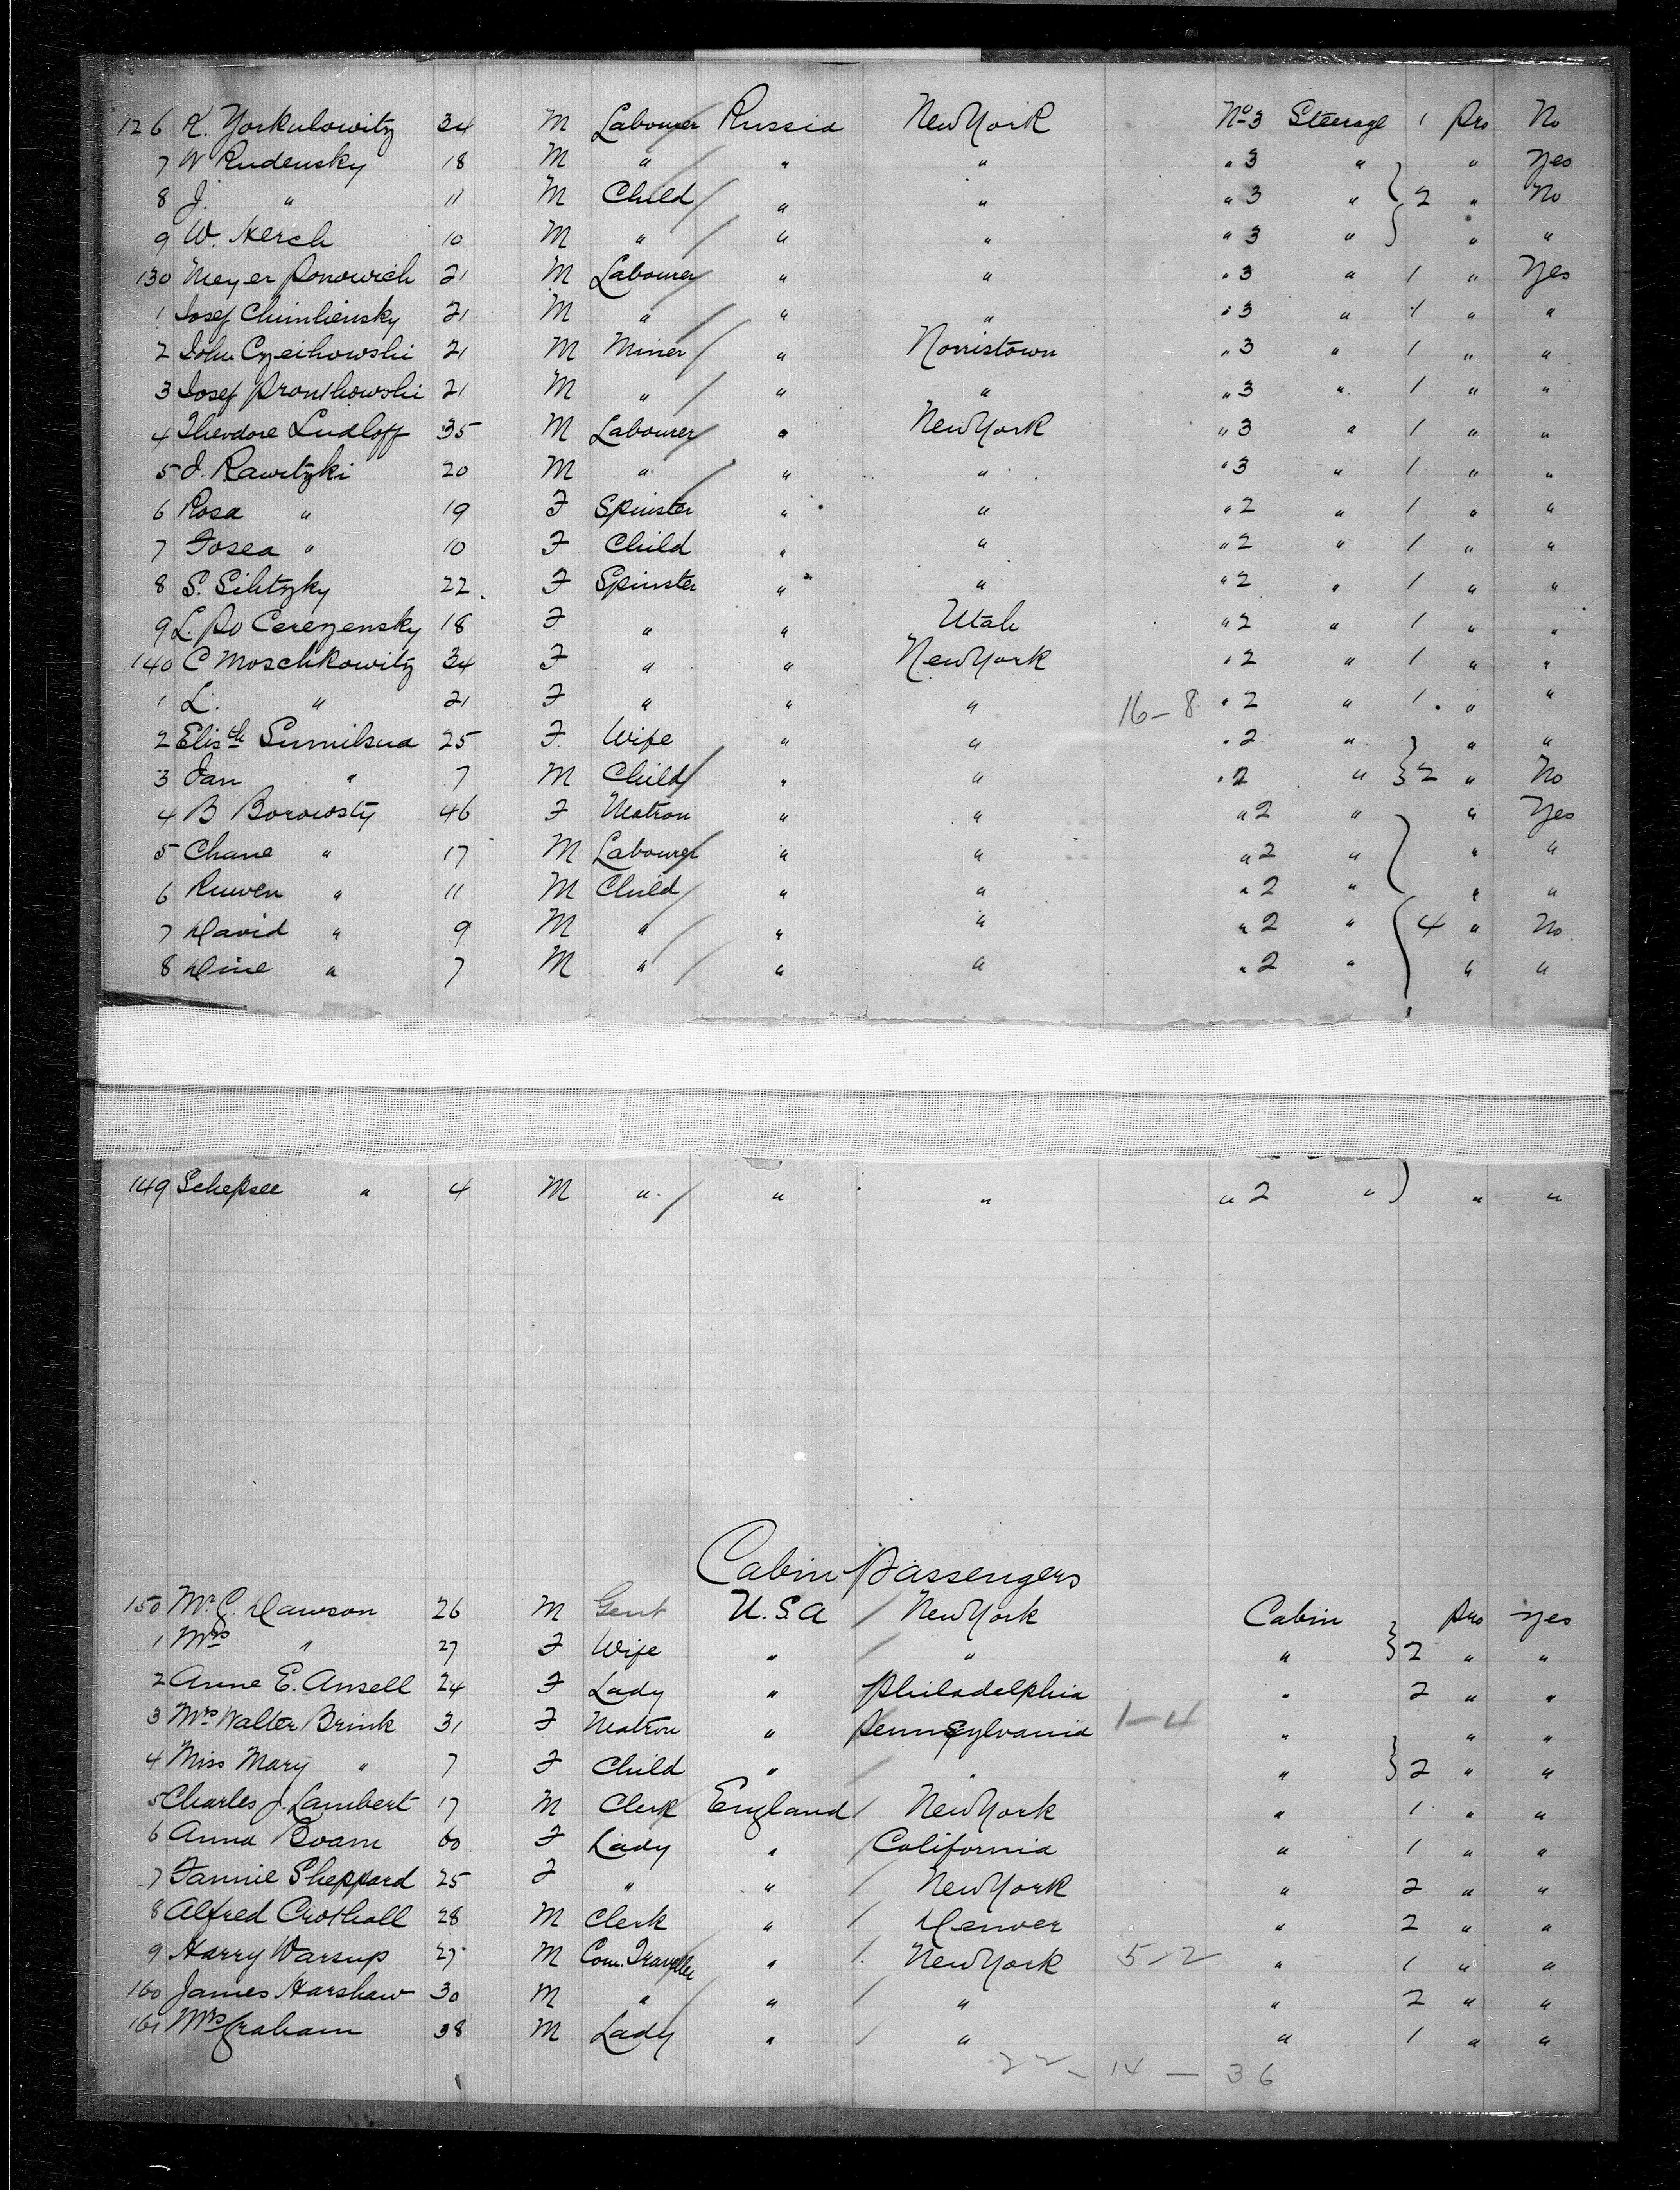 126 R. Yorkulowitz 34 M Labourer Russia New York No 3 Steerage 1 Pro No
7 W Rudensky 18 M " " " " 3 " " Yes
8 J. " 11 M Child " " " 3 " 2 " No
9 W. Herch 10 M " " " " 3 " " "
130 Meyer Ponowich 21 M Labourer " " " 3 " 1 " Yes
1 Josef Chimliensky 21 M " " " " 3 " 1 " "
2 John Czeihowski 21 M Miner " Norristown " 3 " 1 " "
3 Josef Pronthowski 21 M " " " " 3 " 1 " "
4 Theodore Ludloff 35 M Labourer " New York " 3 " 1 " "
5 J. Rawitzki 20 M " " " " 3 " 1 " "
6 Rosa " 19 F Spinster " " " 2 " 1 " "
7 Fosea " 10 F Child " " " 2 " 1 " "
8 S. Silitzky 22 F Spinster " " " 2 " 1 " "
9 L. Po Cerezensky 18 F " " Utah " 2 " 1 " "
140 C Moschkowitz 34 F " " New York " 2 " 1 " "
1 L. " 21 F " " " 16-8 " 2 " 1 " "
2 Elisth Sumilsua 25 F Wife " " " 2 " " "
3 Jan " 7 M Child " " " 2 " 2 " No
4 B Borowsty 46 F Matron " " " 2 " " Yes
5 Chane " 17 M Labourer " " " 2 " " "
6 Ruwen " 11 M Child " " " 2 " " "
7 David " 9 M " " " " 2 " 4 " No
8 Dine " 7 M " " " " 2 " " "
149 Schepsee " 4 M " " " " 2 " " "
Cabin Passengers
150 Mr. C. Dawson 26 M Gent U.S.A New York Cabin Pro Yes
1 Mrs " 27 F Wife " " " 2 " "
2 Anne E. Ansell 24 F Lady " Philadelphia " 2 " "
3 Mrs Walter Brink 31 F Matron " Pennsylvania 1-4 " " "
4 Miss Mary " 7 F Child " " " 2 " "
5 Charles J. Lambert 17 M Clerk England New York " 1 " "
6 Anna Boam 60 F Lady " California " 1 " "
7 Fannie Sheppard 25 F " " New York " 2 " "
8 Alfred Crothall 28 M Clerk " Denver " 2 " "
9 Harry Warsup 27 M Com. Traveller " New York 5-2 " 1 " "
160 James Harshaw 30 M " " " " 2 " "
161 Mrs Graham 38 M Lady " " " 1 " "
22 - 14 - 36